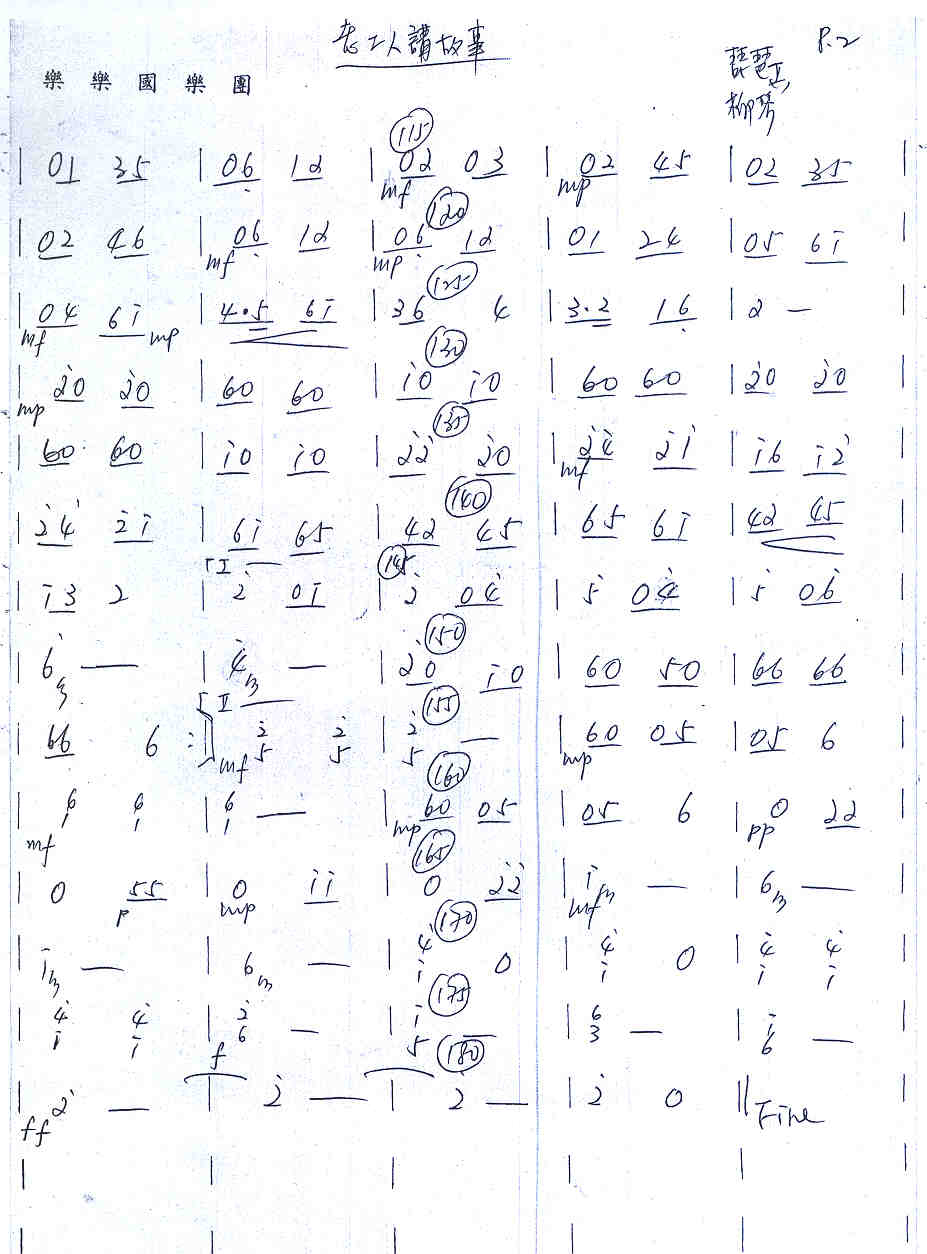 老工人講故事
P.2
樂樂國樂團
琵琶
柳琴
115
| 01 35 | 06 12 | 02 03 | 02 45 | 02 35 |
mf mp
120
| 02 46 | 06 12 | 06 12 | 01 24 | 05 61 |
mf mp
125
| 04 61 | 4.5 61 | 36 4 | 3.2 16 | 2 — |
mf mp
130
| 20 20 | 60 60 | 10 10 | 60 60 | 20 20 |
mp
135
| 60 60 | 10 10 | 22 20 | 24 21 | 16 12 |
mf
140
| 24 21 | 61 65 | 42 45 | 65 61 | 42 45 |
I — 145
| 13 2 | 2 01 | 2 04 | 5 04 | 5 06 |
150
| 6 — | 4 — | 20 10 | 60 50 | 66 66 |
II — 155
| 66 6 :| 2 2 | 2 — | 60 05 | 05 6 |
5 5 5
mf mp
160
| 6 6 | 6 — | 60 05 | 05 6 | 0 22 |
1 1 1
mf mp pp
165
| 0 55 | 0 11 | 0 22 | 1 — | 6 — |
p mp mf
170
| 1 — | 6 — | 4 0 | 4 0 | 4 4 |
1 1 1 1
175
| 4 4 | 2 — | 1 | 6 — | 1 — |
1 1 6 5 3 6
f 180
| 2 — | 2 — | 2 — | 2 0 || Fine
ff